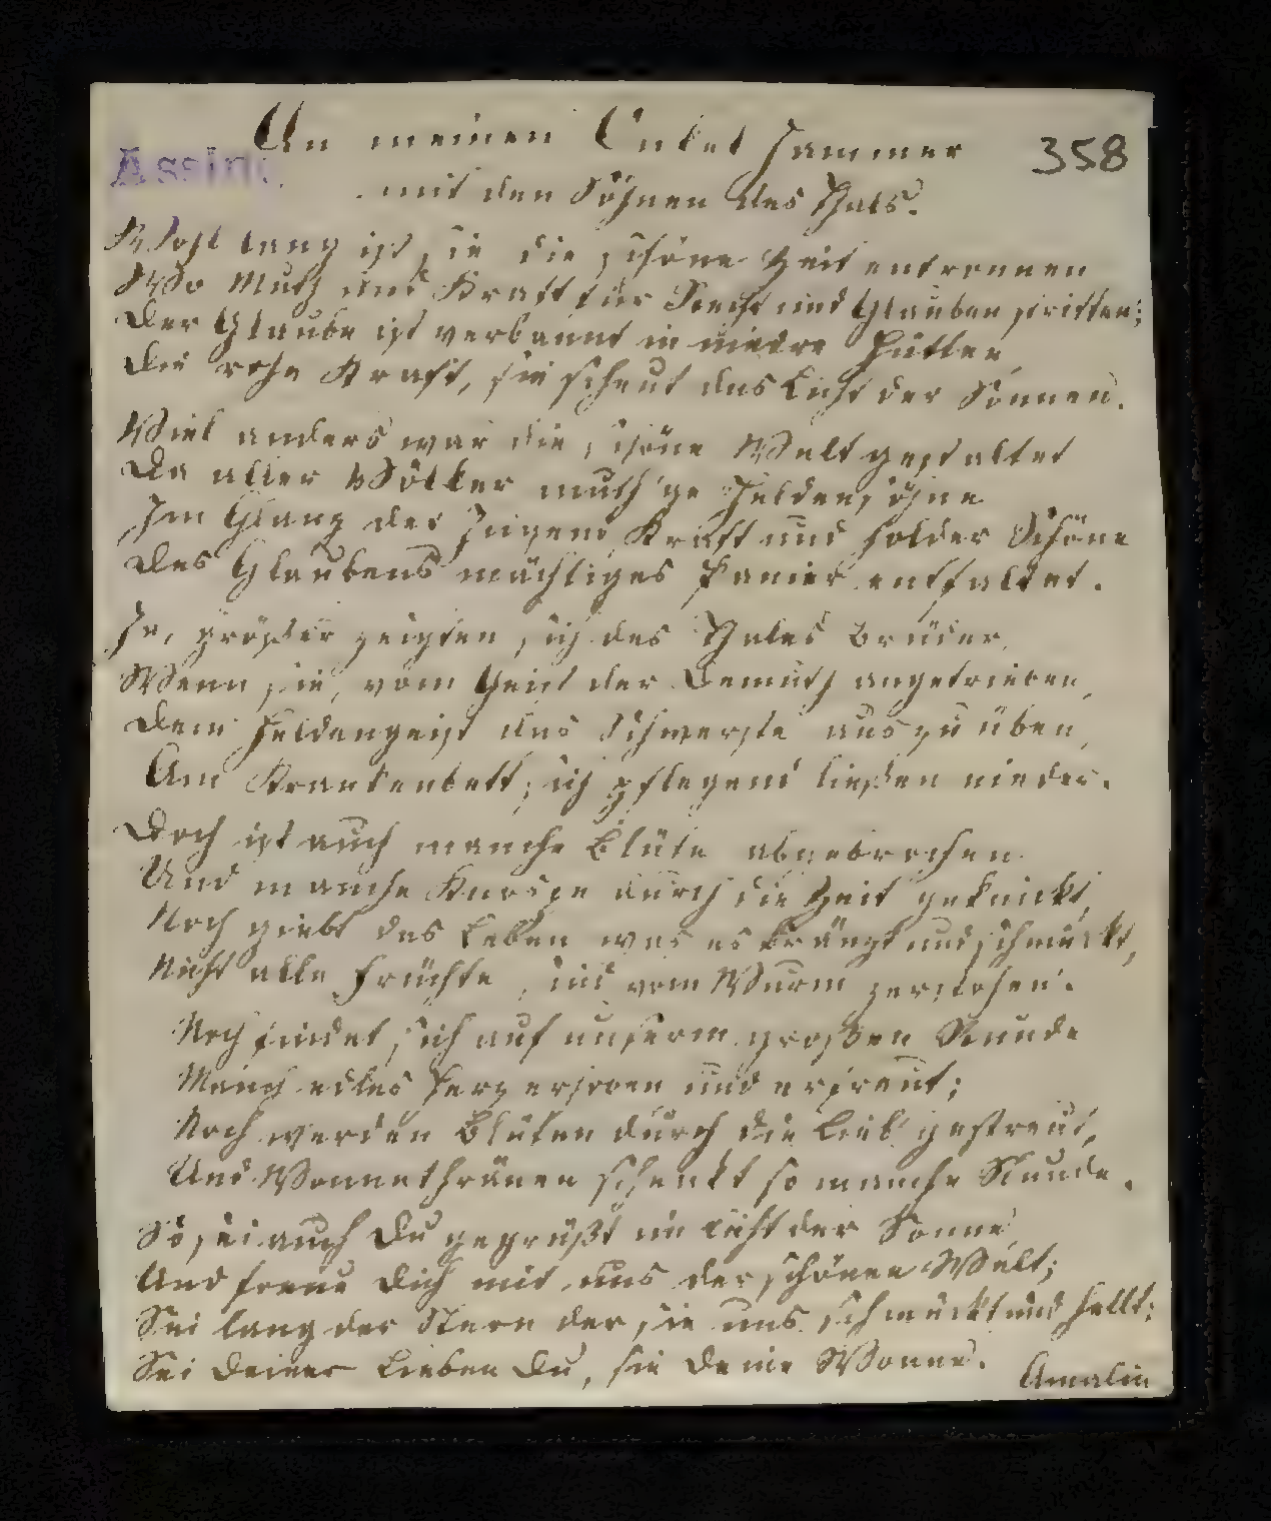 An meinen Onkel Hammer
358
Assing
mit den Söhnen des Thals.
Wohl lang ist sie die schöne Zeit entronnen
Wo Muth und Kraft für Recht und Glauben stritten;
Der Glaube ist verbannt in niedre Hütten,
Die rohe Kraft, sie scheut das Licht der Sonnen.
Viel anders war die schöne Welt gestaltet
Da aller Völker muth'ge Heldensöhne
Im Glanz der Jugend Kraft und holder Schöne
Des Glaubens mächtiges Panier entfaltet.
Ja, größer zeigten sich des Thales Brüder,
Wenn sie, vom Geist der Demuth angetrieben,
Dem Heldengeist das Schwerste auszuüben,
Am Krankenbett sich pflegend ließen nieder.
Doch ist auch manche Blüte abgebrochen
Und manche Knospe durch die Zeit geknickt,
Noch giebt das Leben was es kränzt und schmückt,
Nicht alle Früchte sind vom Wurm zerstochen.
Noch findet sich auf unserm großen Runde
Manch edles Herz erhoben und erfreut;
Noch werden Blüten durch die Lieb' gestreut,
Und Wonnethränen schenkt so manche Stunde.
So sei auch Du gegrüßt im Licht der Sonne,
Und freue Dich mit uns der schönen Welt;
Sei lang der Stern der sie uns schmückt und hellt;
Sei Deiner Lieben Du, sie Deine Wonne.
Amalia